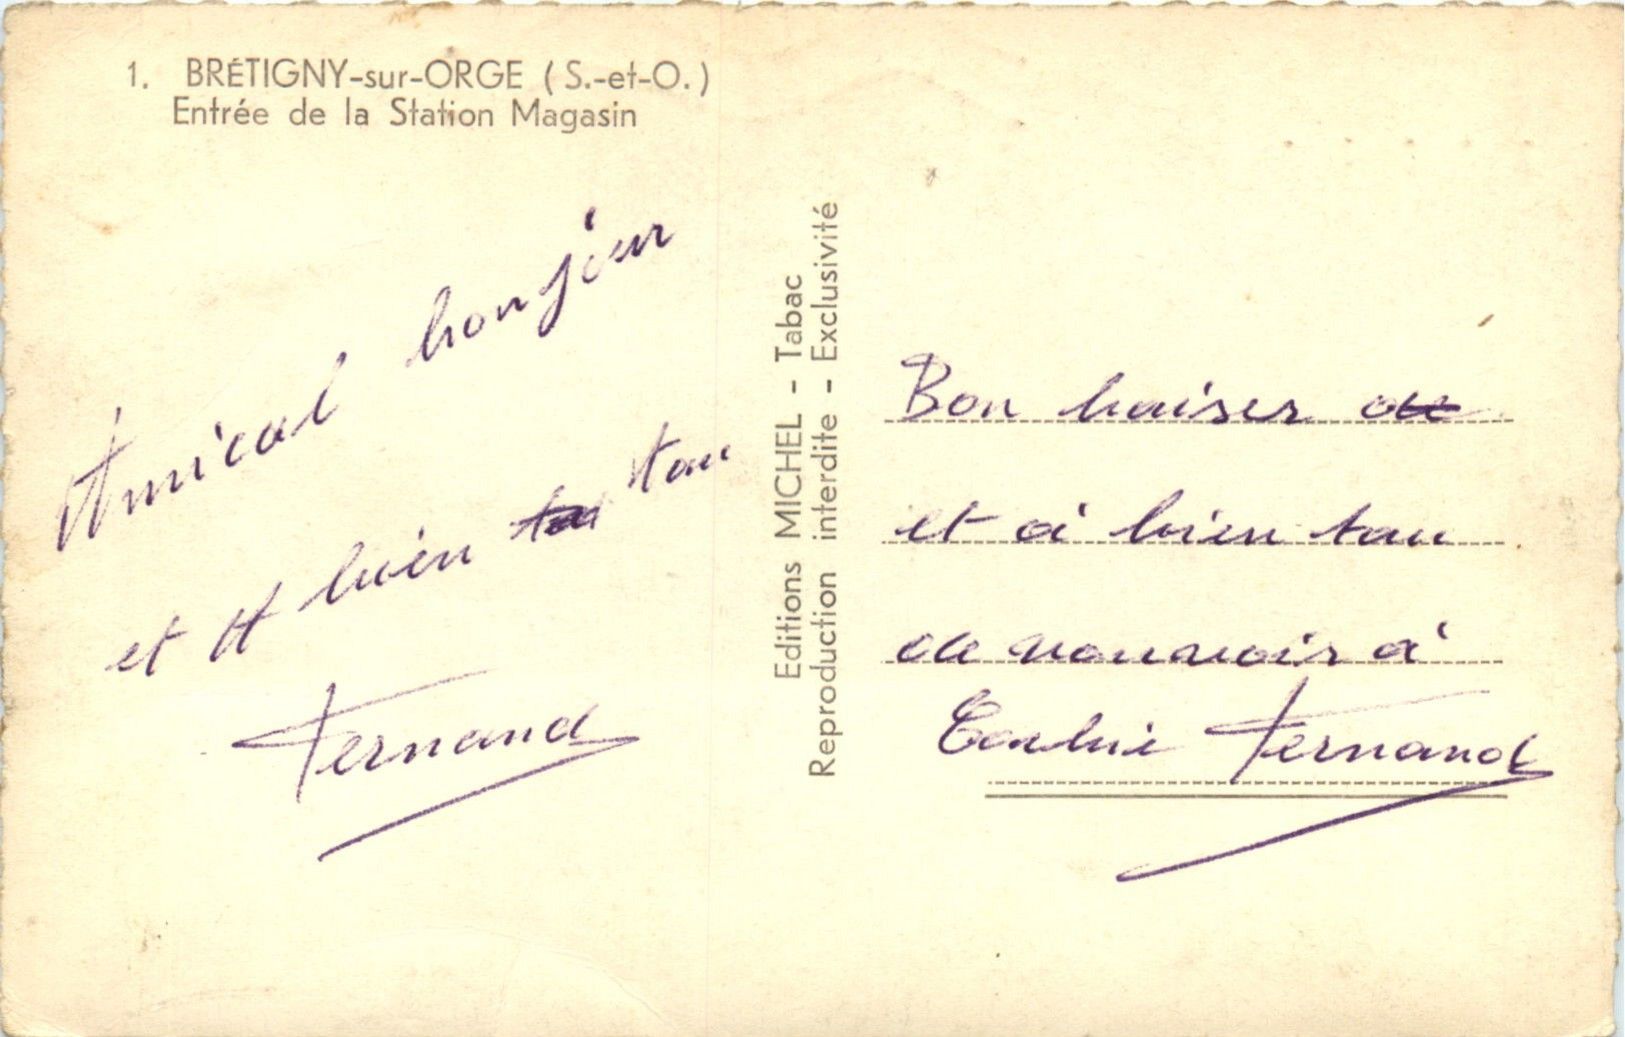 1. BRÉTIGNY-sur-ORGE (S.-et-O.)
Entrée de la Station Magasin
Amical bonjour
et A bien tau
Fernand
Editions MICHEL - Tabac
Reproduction interdite - Exclusivité
Bon baiser de
et à bien tau
de vouavoir à
Corbie Fernand